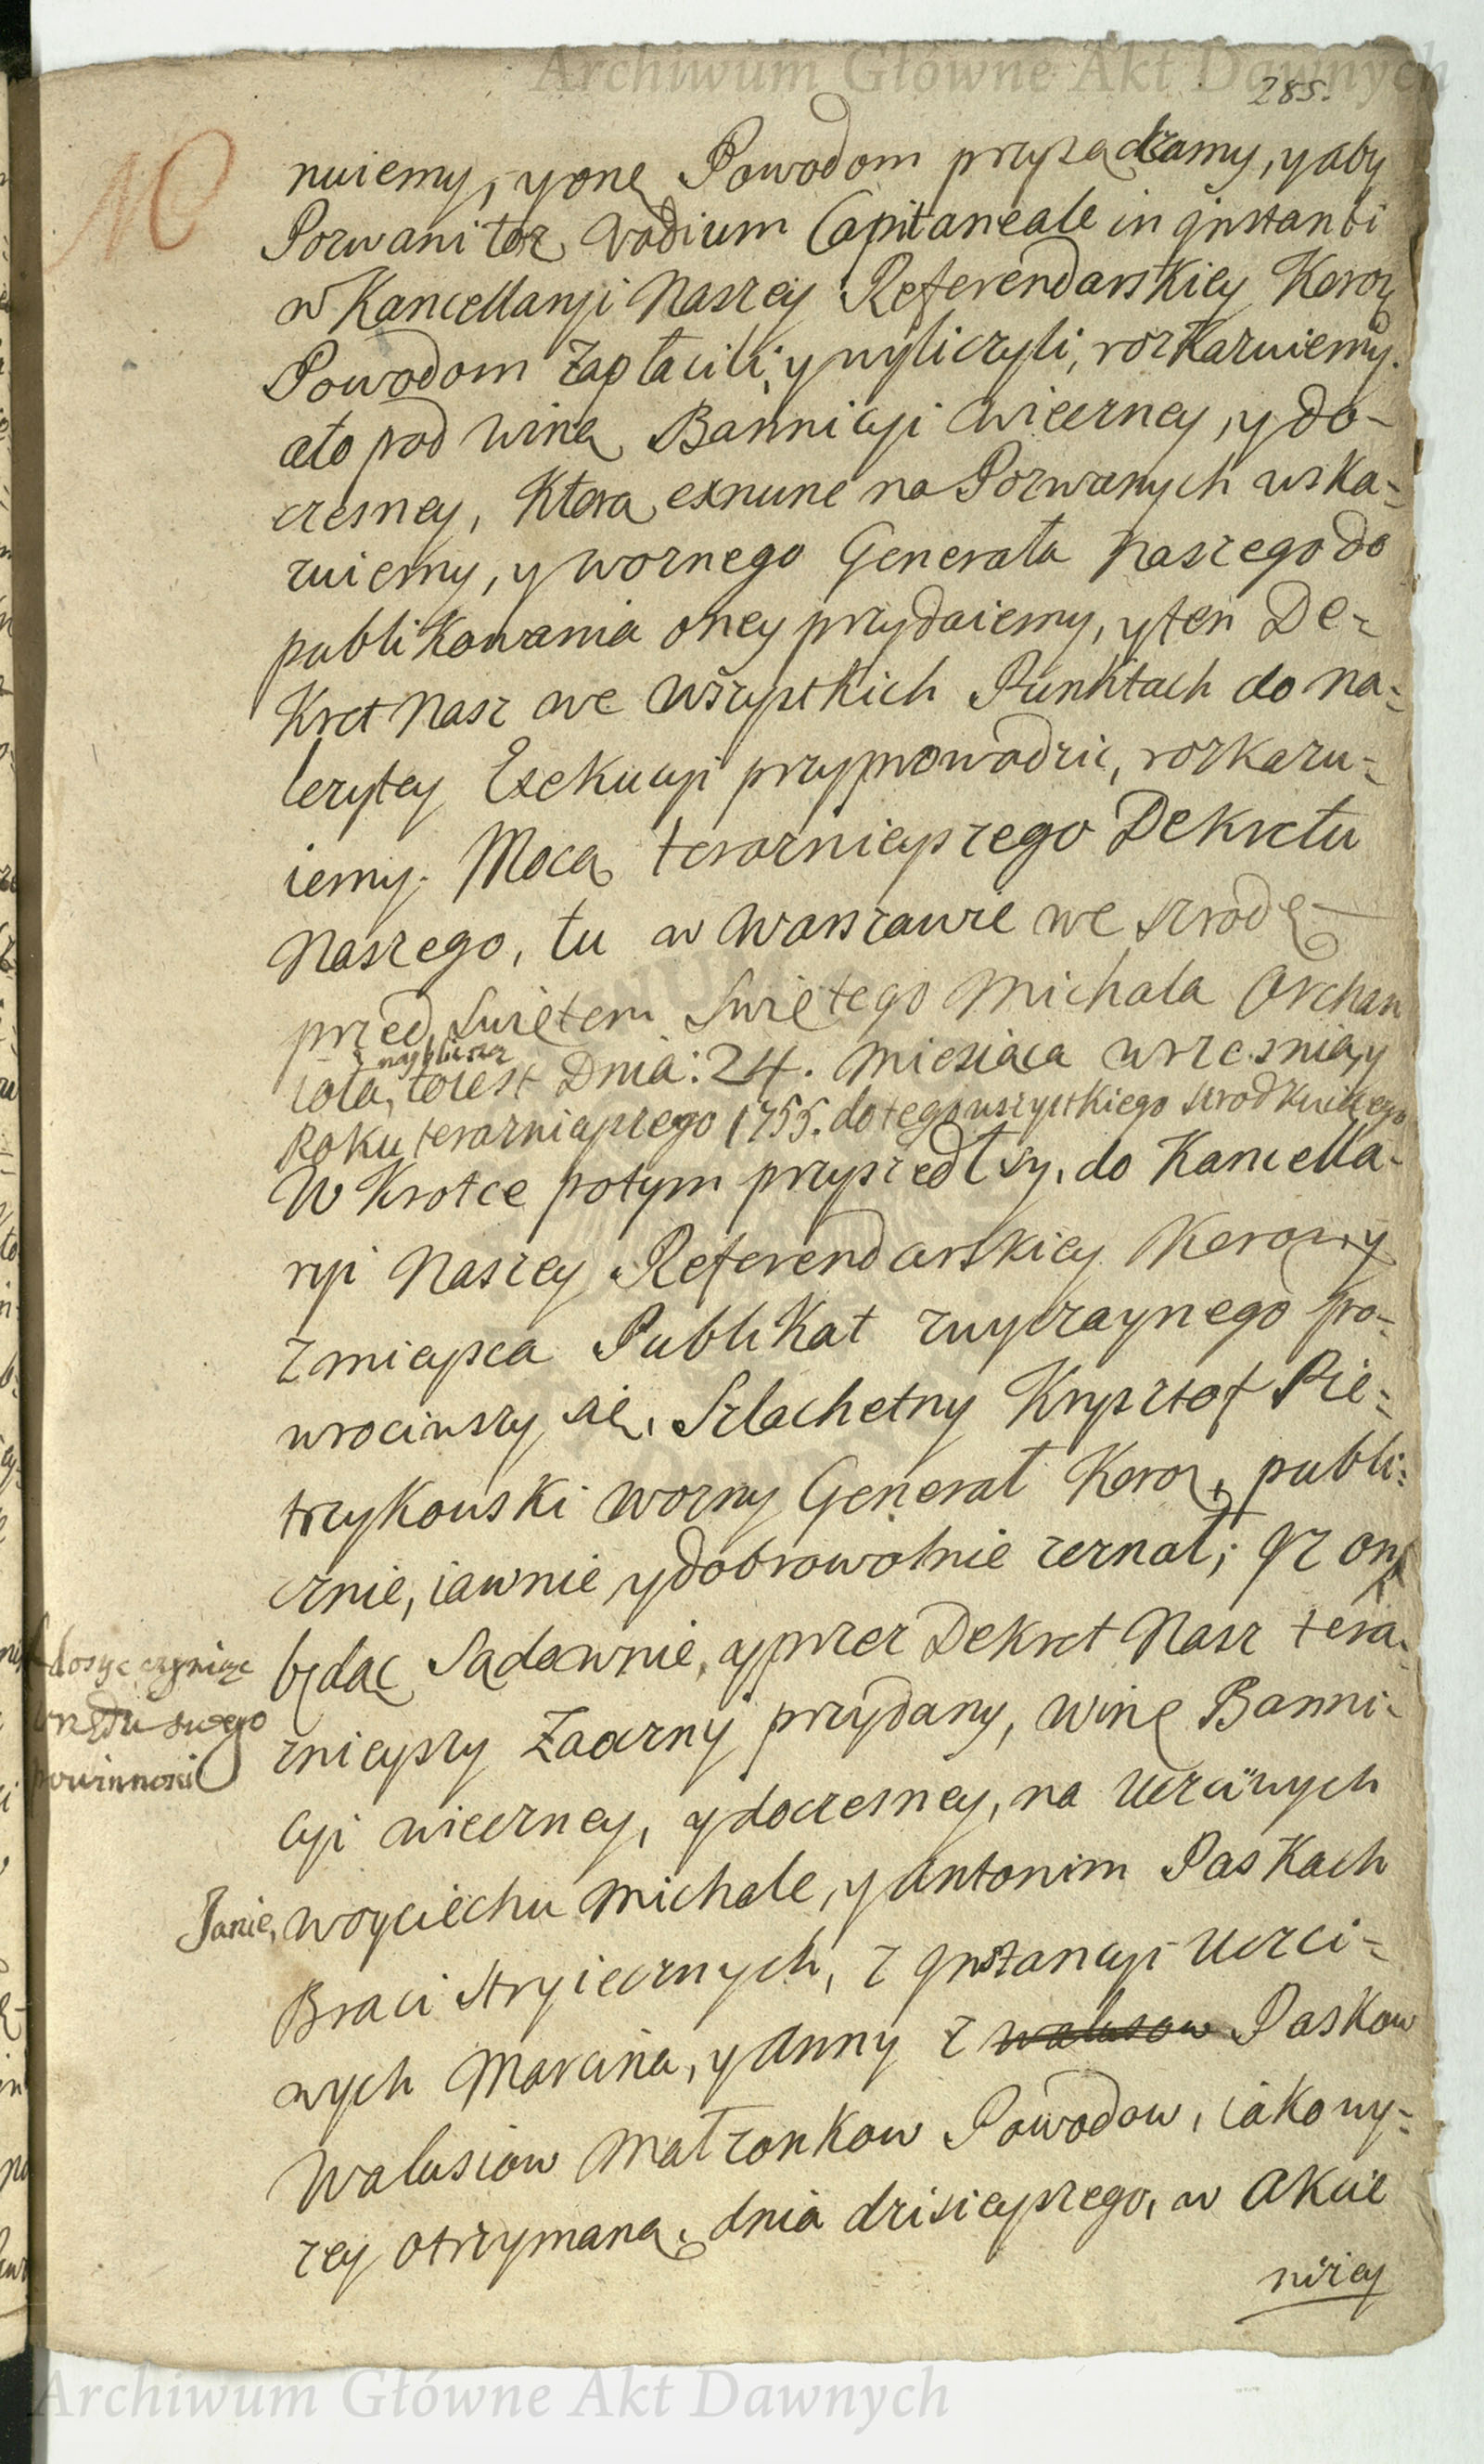 Archiwum Główne Akt Dawnych
285.
nuiemy, y onę Powodom przysadzamy, y aby
Pozwani toz Vadium Capitaneale in instanti
w Kancellaryi Naszey Referendarskiey Koron
Powodom zapłacili, y wyliczyli, rozkazuiemy.
ato pod winą Bannicyi wieczney, y do-
czesney, Ktorą exnunc na Pozwanych wska-
zuiemy, y woznego Generała Naszego do
publikowania oney przydaiemy, y ten De-
Kret Nasz we Wszystkich Punktach do na-
lezytey Exekucyi przyprowadzic, rozkazu-
iemy. Mocą teraznieyszego Dekretu
Naszego, tu w Warszawie we szrodę
przed Swiętem Swiętego Michała Archan
nayblizszą
ioła, toiest Dnia: 24. Miesiąca Wrzesnia, y
Roku teraznieyszego 1755. do tego wszystkiego
W Krotce potym przyszedłszy, do Kancella-
ryi Naszey Referendarskiey Koronny
z mieysca Publikat zwyczaynego po-
wrociwszy się, Szlachetny Krysztof Pie-
trzykowski Wozny Generał Koron, publi-
cznie, iawnie, y dobrowolnie zeznał; Iz on
dosyc czyniąc
Urzędu swego
powinnosci
będąc Sadownie, y przez Dekret Nasz tera-
znieyszy Zaoczny przydany, winę Banni-
cyi wieczney, y doczesney, na Uczciwych
Janie, Woyciechu Michale, y Antonim Paskach
Braci Stryiecznych, z Instancyi Uczci-
wych Marcina, y Anny z Walusow Paskow
Walusiow Małzonkow Powodow, iako wy-
zey otrzymaną, dnia dzisieyszego, w Akcie
nizey
Archiwum Główne Akt Dawnych